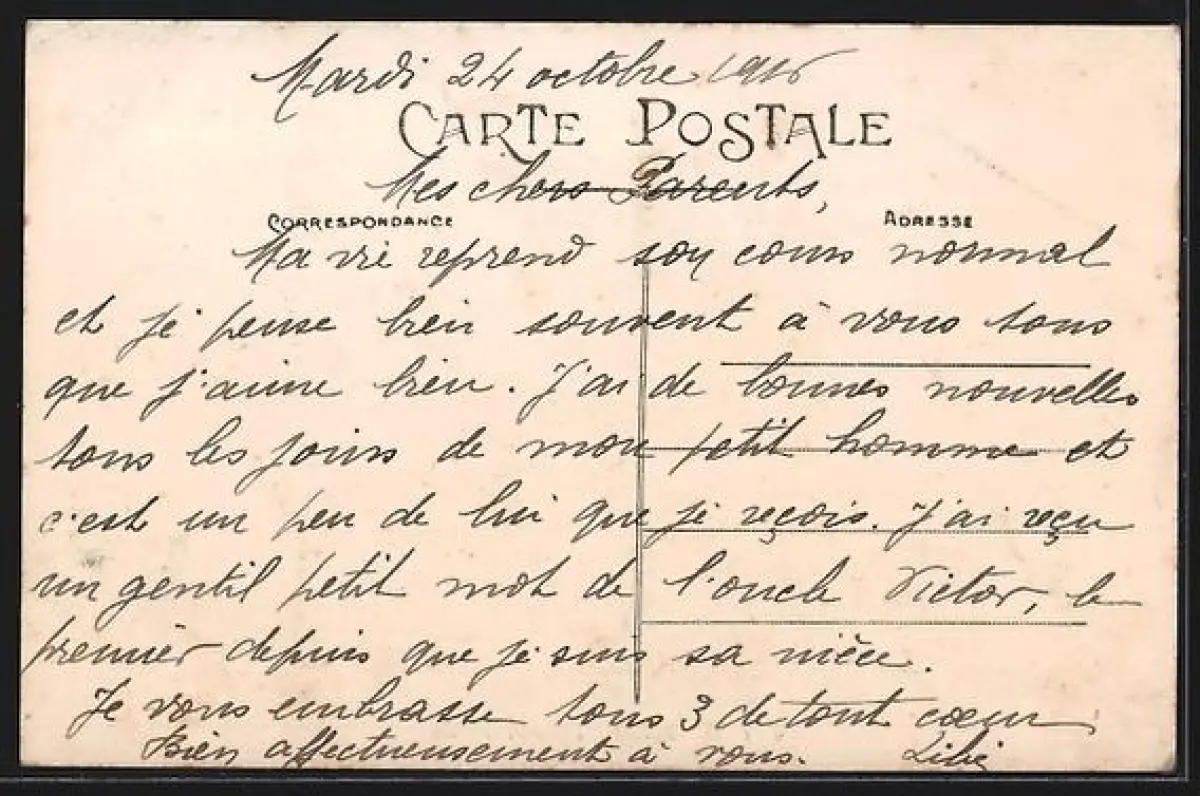 Mardi 24 octobre 1916
CARTE POSTALE
Mes chers Parents,
CORRESPONDANCE
ADRESSE
Ma vie reprend son cours normal
et je pense bien souvent à vous tous
que j'aime bien. J'ai de bonnes nouvelles
tous les jours de mon petit homme et
c'est un peu de lui que je reçois. J'ai reçu
un gentil petit mot de l'oncle Victor, le
premier depuis que je suis sa nièce.
Je vous embrasse tous 3 de tout coeur
Bien affectueusement à vous. Lilie